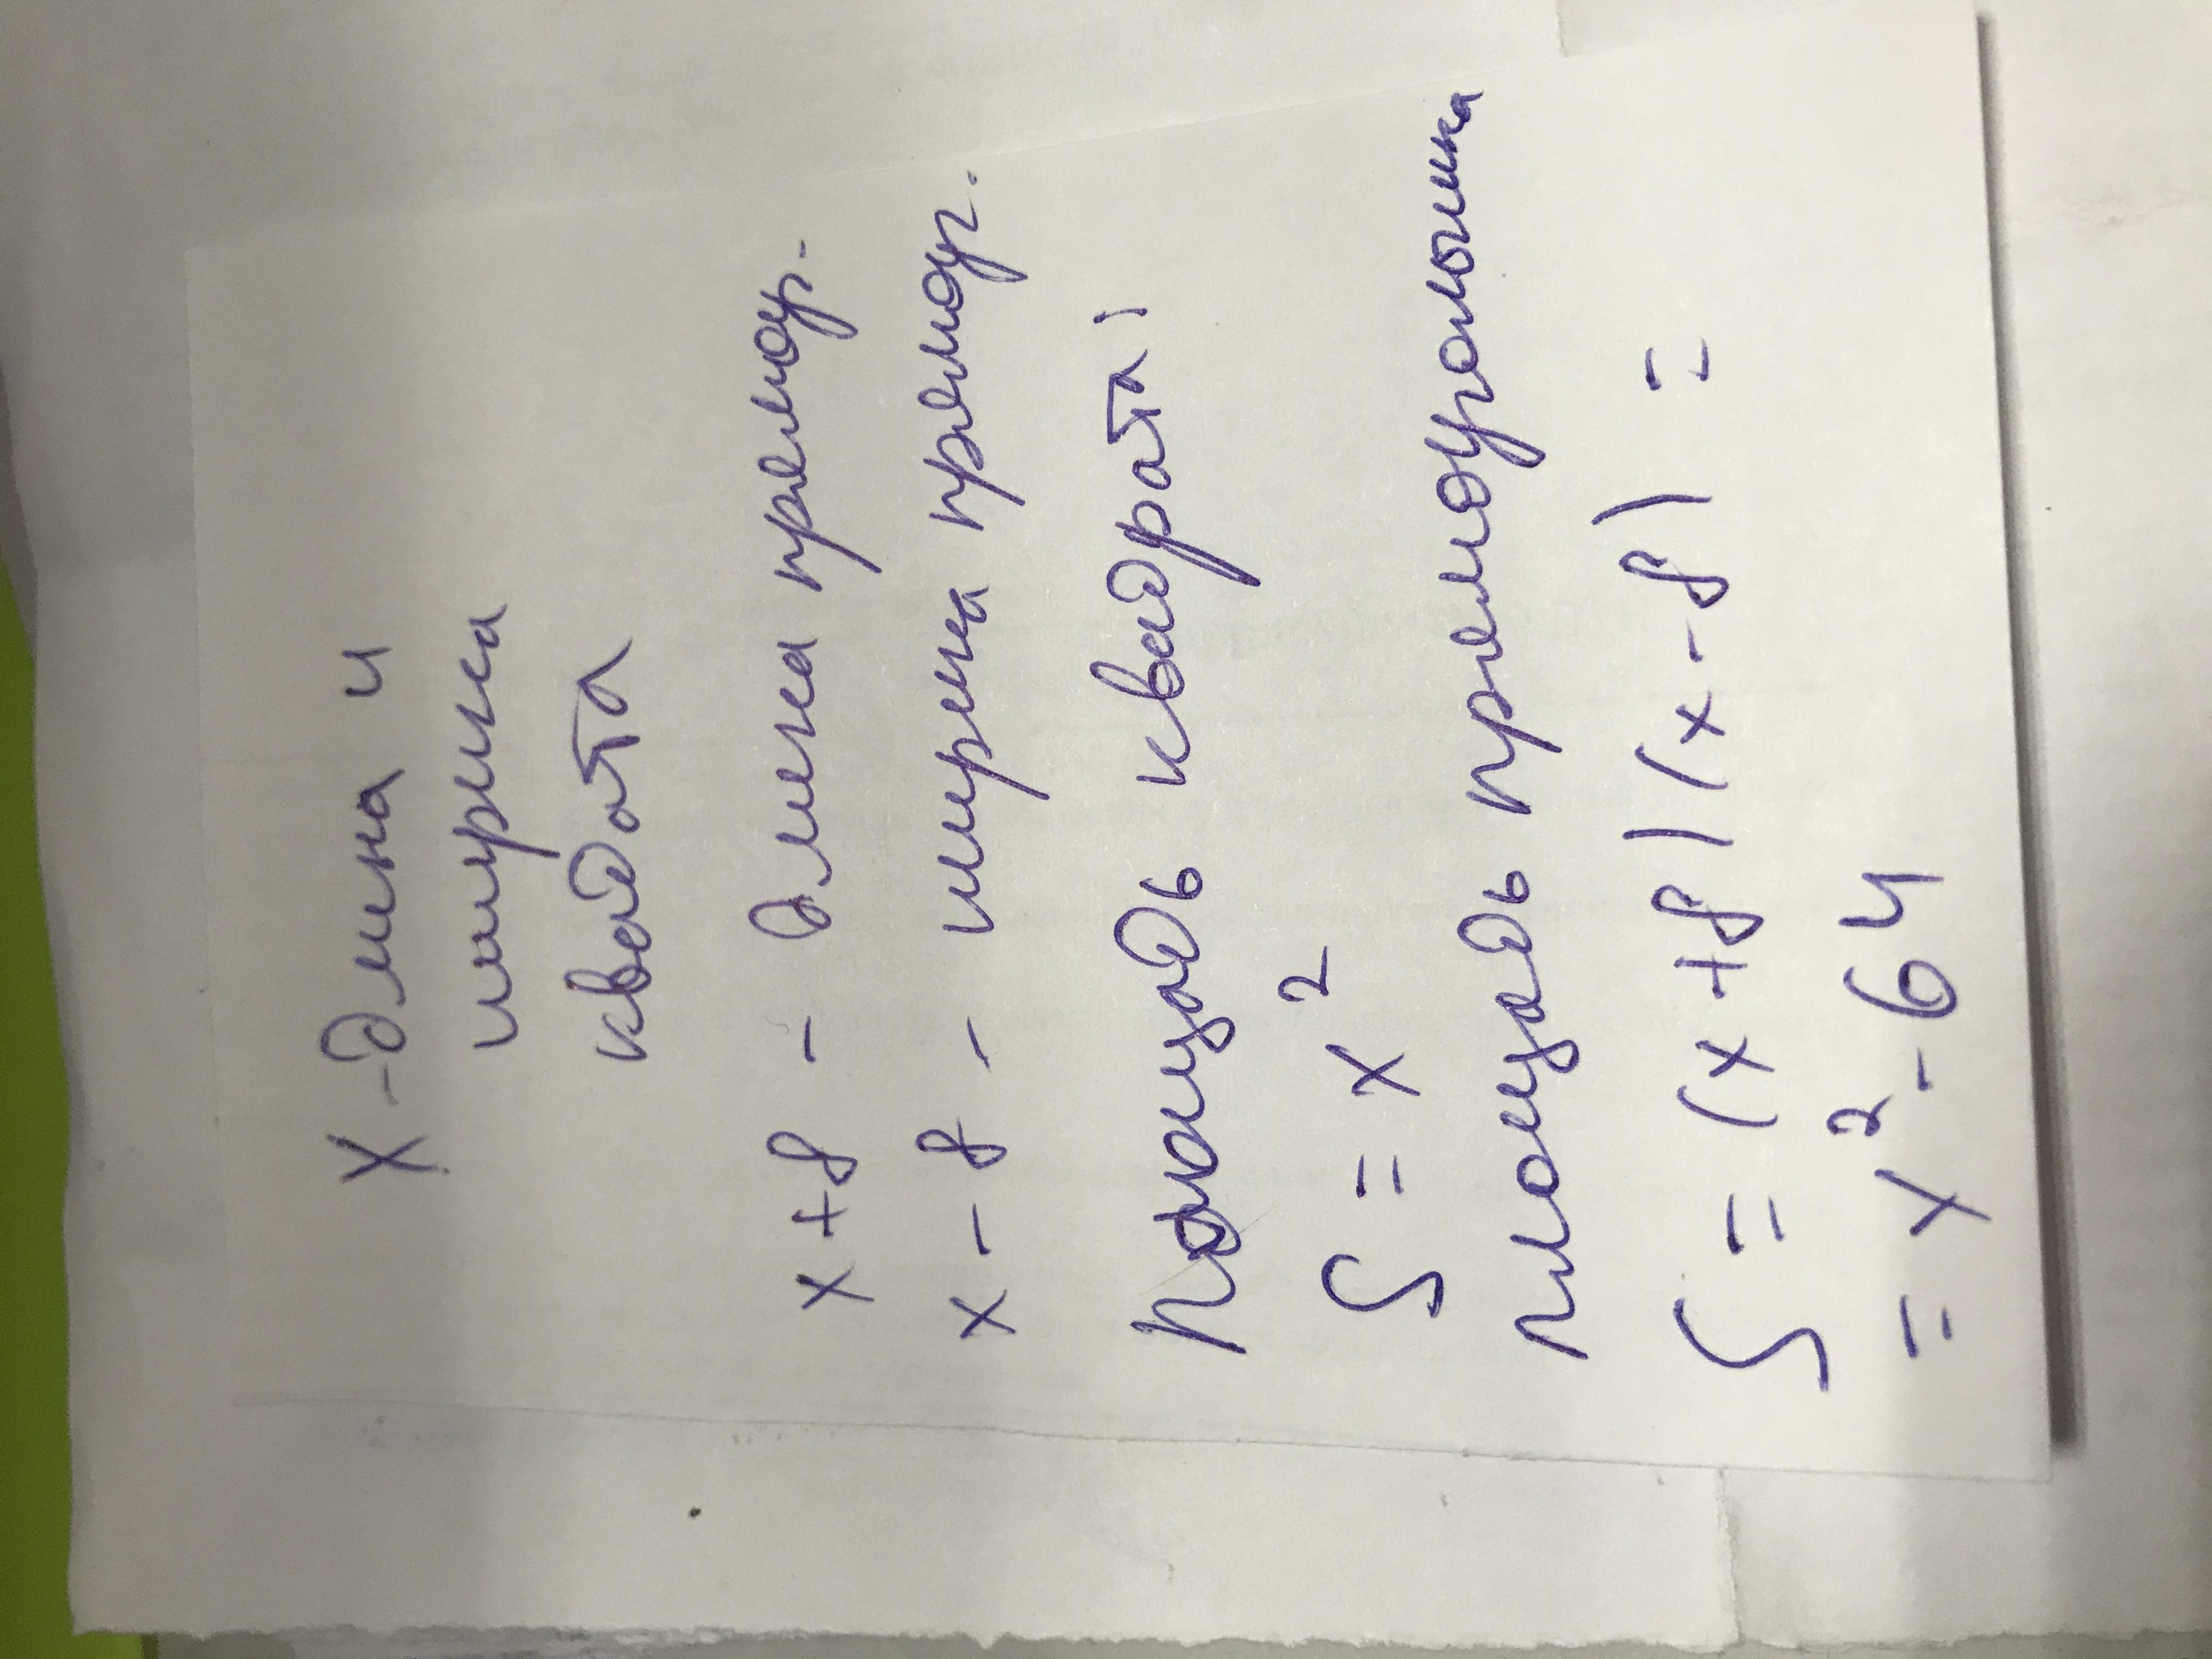 X - длина и
ширина
квадрата
x + 8 - длина прямоуг.
x - 8 - ширина прямоуг.
Площадь квадрата:
S = x²
площадь прямоугольника
S = (x + 8)(x - 8) =
= x² - 64